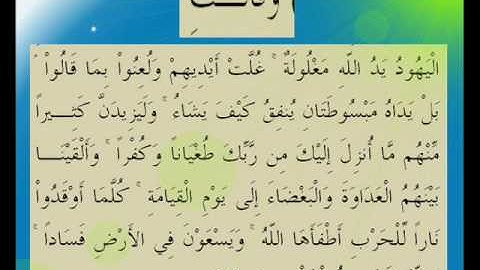 وَقَالَتِ
الْيَهُودُ يَدُ اللّهِ مَغْلُولَةٌ ۚ غُلَّتْ أَيْدِيهِمْ وَلُعِنُواْ بِمَا قَالُواْ ۘ
بَلْ يَدَاهُ مَبْسُوطَتَانِ يُنفِقُ كَيْفَ يَشَاءُ ۚ وَلَيَزِيدَنَّ كَثِيراً
مِّنْهُم مَّا أُنزِلَ إِلَيْكَ مِن رَّبِّكَ طُغْيَاناً وَكُفْراً ۚ وَأَلْقَيْنَا
بَيْنَهُمُ الْعَدَاوَةَ وَالْبَغْضَاء إِلَى يَوْمِ الْقِيَامَةِ ۚ كُلَّمَا أَوْقَدُواْ
نَاراً لِّلْحَرْبِ أَطْفَأَهَا اللّهُ ۚ وَيَسْعَوْنَ فِي الأَرْضِ فَسَاداً ۚ